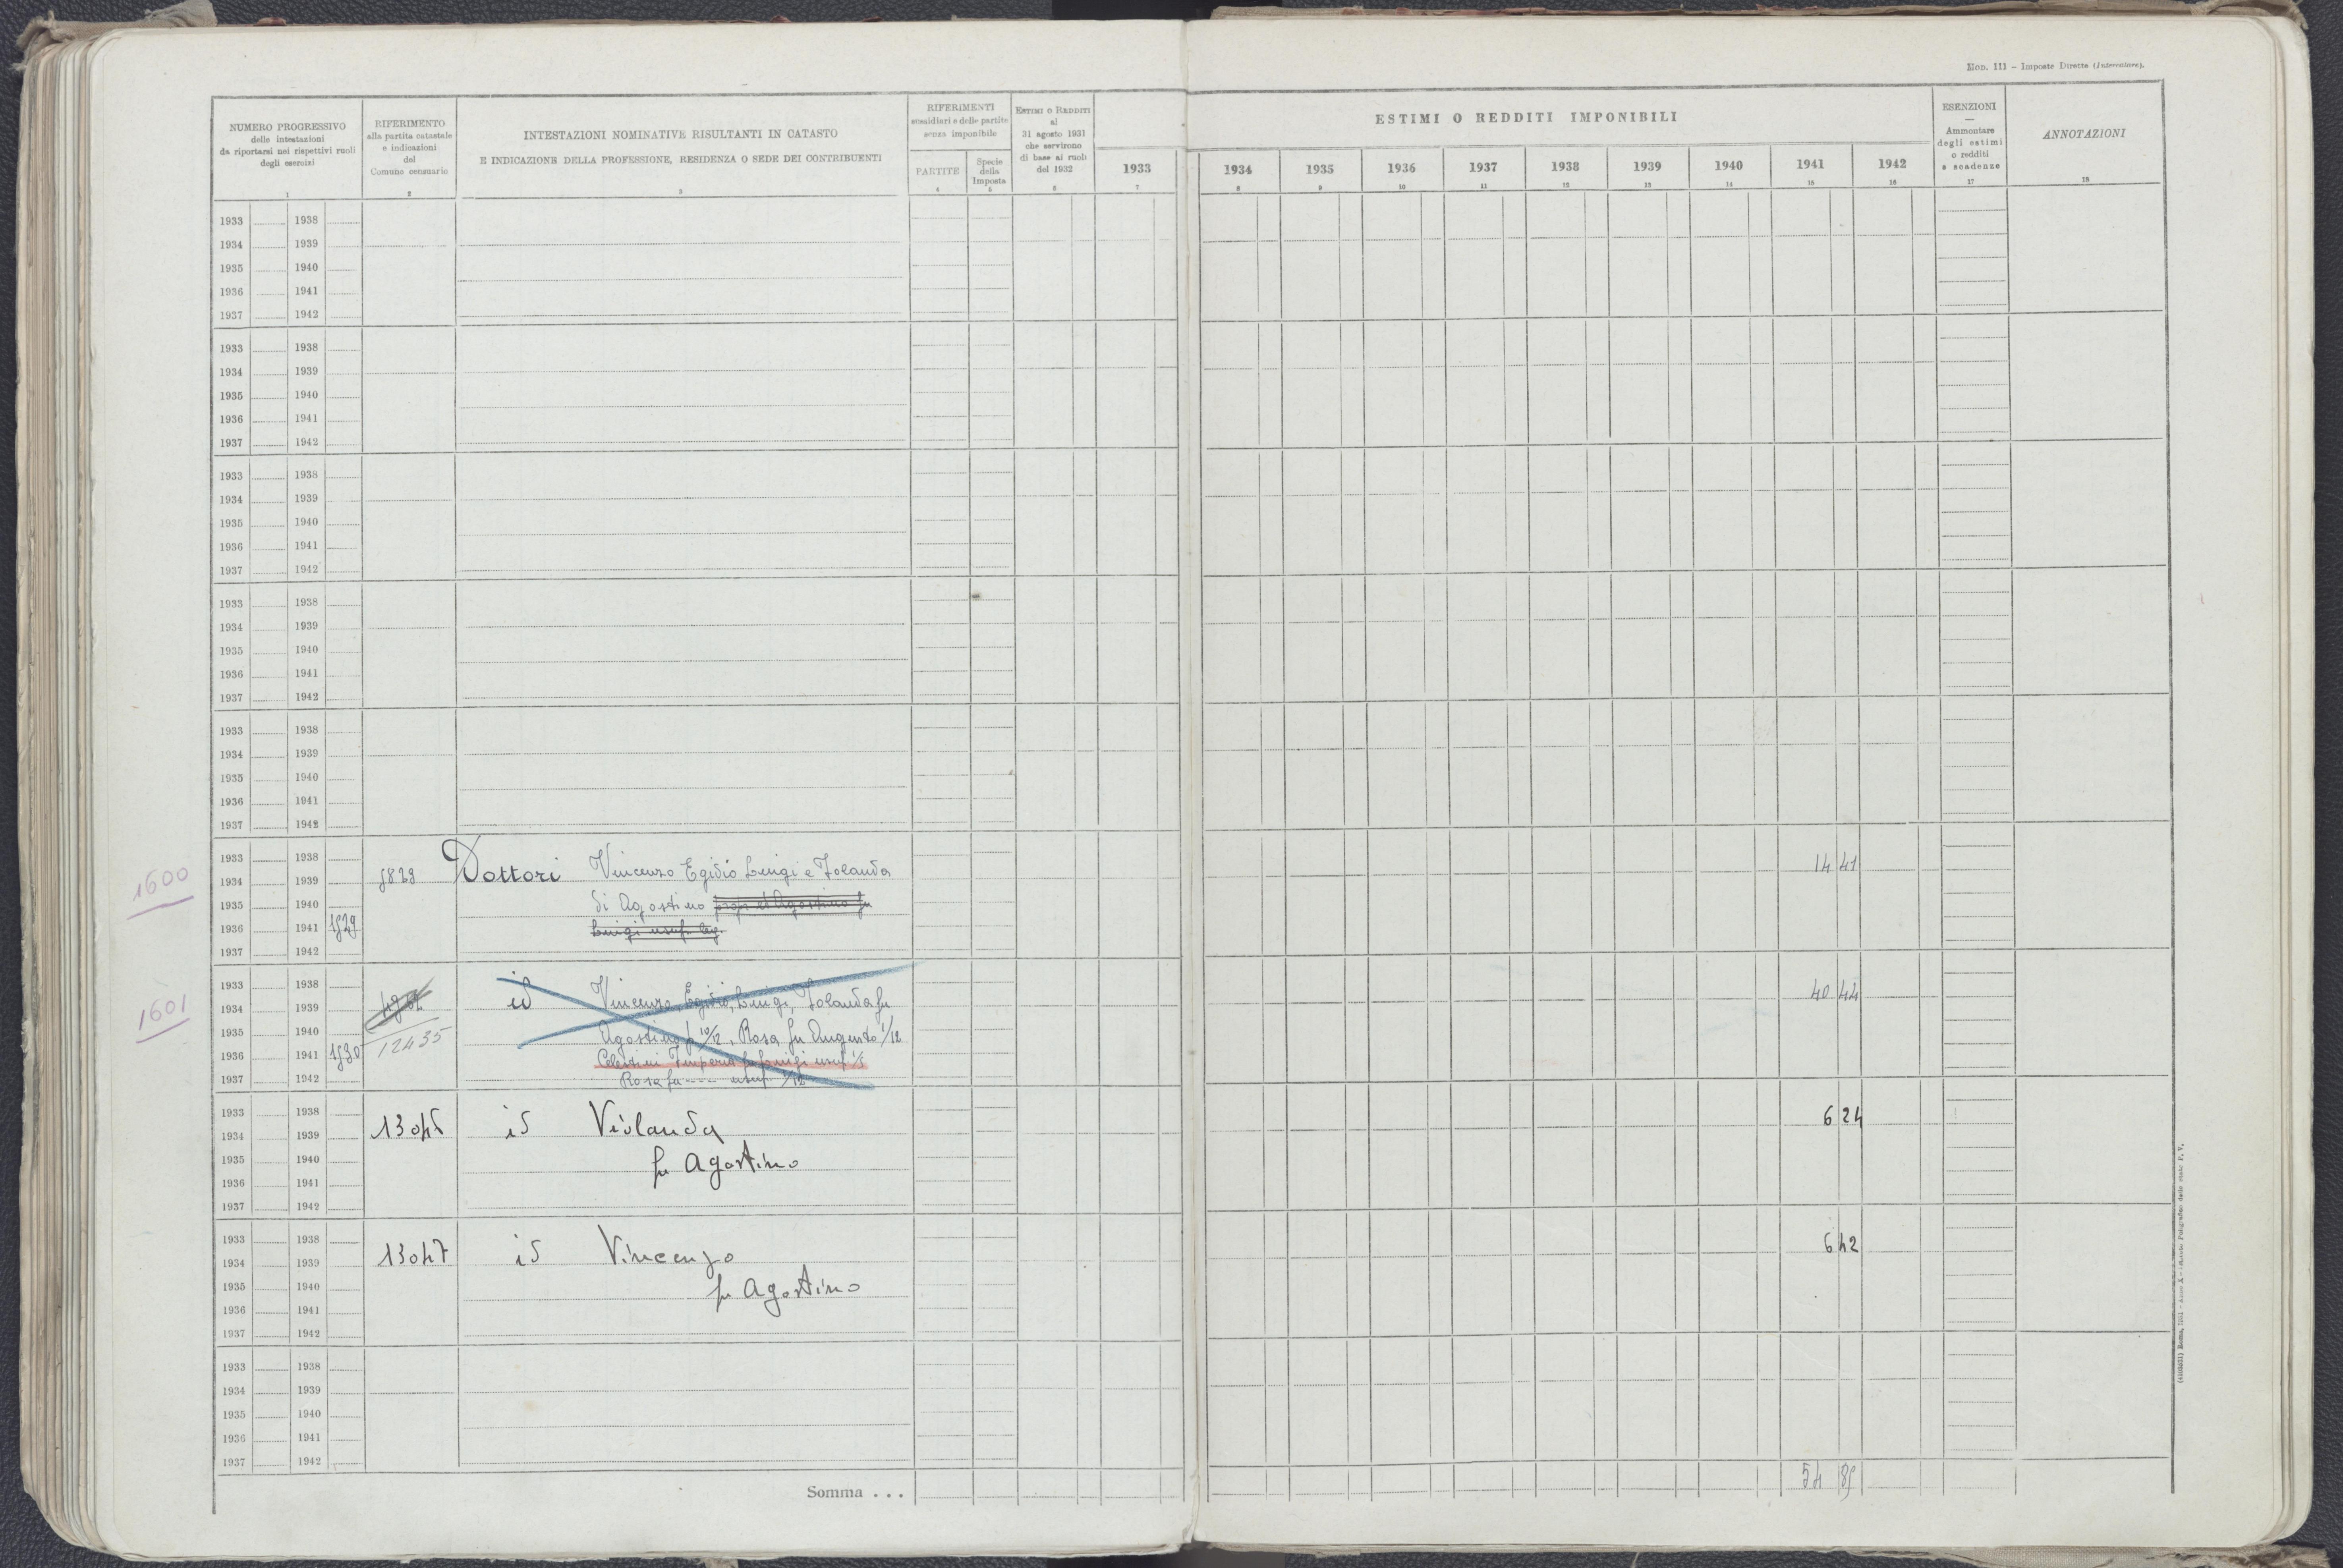 MOD. 111 – Imposte Dirette (Intercalare).
NUMERO PROGRESSIVO
delle intestazioni
da riportarsi nei rispettivi ruoli
degli esercizi
1
RIFERIMENTO
alla partita catastale
e indicazioni
del
Comune censuario
2
INTESTAZIONI NOMINATIVE RISULTANTI IN CATASTO
E INDICAZIONE DELLA PROFESSIONE, RESIDENZA O SEDE DEI CONTRIBUENTI
3
RIFERIMENTI
sussidiari e delle partite
senza imponibile
PARTITE
4
Specie
della
Imposta
5
ESTIMI O REDDITI
al
31 agosto 1931
che servirono
di base ai ruoli
del 1932
6
1933
7
ESTIMI O REDDITI IMPONIBILI
1934 1935 1936 1937 1938 1939 1940 1941 1942
8 9 10 11 12 13 14 15 16
ESENZIONI
—
Ammontare
degli estimi
o redditi
e scadenze
17
ANNOTAZIONI
18
1933 1938
1934 1939
1935 1940
1936 1941
1937 1942
1933 1938
1934 1939
1935 1940
1936 1941
1937 1942
1933 1938
1934 1939
1935 1940
1936 1941
1937 1942
1933 1938
1934 1939
1935 1940
1936 1941
1937 1942
1933 1938
1934 1939
1935 1940
1936 1941
1937 1942
1933 1938
1934 1939
1935 1940
1936 1941 1529
1937 1942
1600
5823 Dottori Vincenzo Egidio Luigi e Jolanda 14 41
di Agostino prop. ed Agostino fu
Luigi usuf. leg.
1933 1938
1934 1939
1935 1940
1936 1941 1530
1937 1942
1601
12435
id Vincenzo, Egidio, Luigi, Jolanda fu 40 42
Agostino p 10/12, Rosa fu Augusto 1/12
Celestini Imperia fu Luigi usuf.
Rosa fu --- usuf. 1/12
1933 1938
1934 1939
1935 1940
1936 1941
1937 1942
13045 id Violanda 6 24
fu Agostino
1933 1938
1934 1939
1935 1940
1936 1941
1937 1942
13047 id Vincenzo 6 42
fu Agostino
1933 1938
1934 1939
1935 1940
1936 1941
1937 1942
Somma . . . 54 85